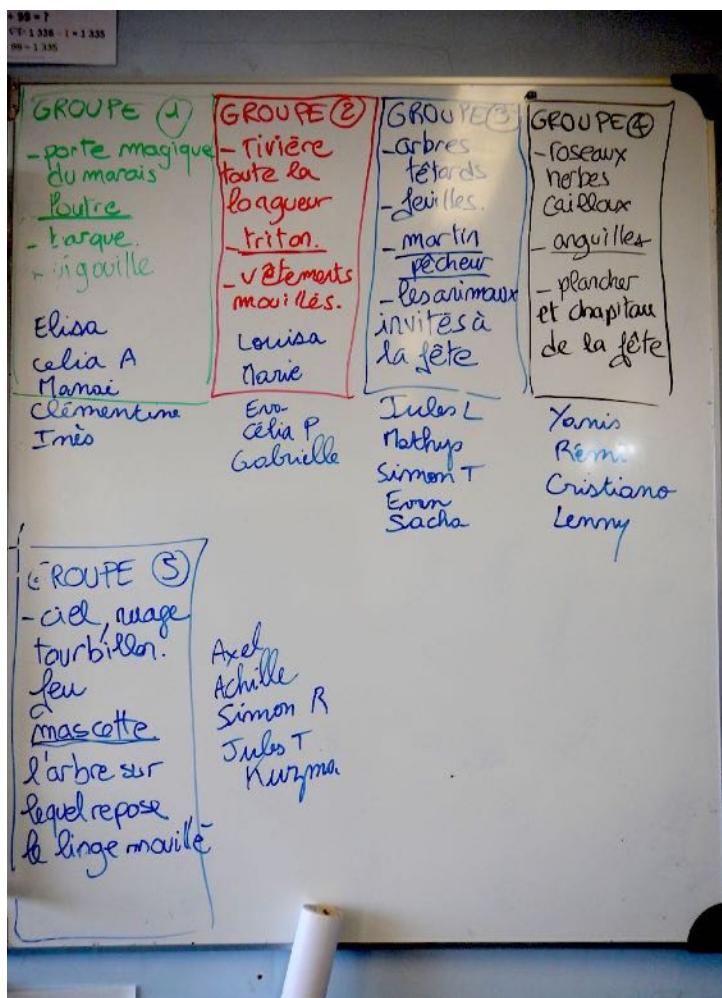 + 99 = ?
1 336 - 1 = 1 335
99 = 1 335
GROUPE 1
- porte magique
du marais
loutre
- barque.
- vigouille
Elisa
Celia A
Manaé
Clémentine
Inès
GROUPE 2
- rivière
toute la
longueur
- triton.
- vêtements
mouillés.
Louisa
Marie
Eva
Célia P
Gabrielle
GROUPE 3
- arbres
têtards
- feuilles.
- martin
pêcheur
- les animaux
invités à
la fête
Jules L
Mathys
Simon T
Evan
Sacha
GROUPE 4
- roseaux
herbes
cailloux
- anguilles
- plancher
et chapitau
de la fête
Yanis
Rémi
Cristiano
Lenny
GROUPE 5
- ciel, nuage
tourbillon.
feu
mascotte
l'arbre sur
lequel repose
le linge mouillé
Axel
Achille
Simon R
Jules T
Kuzma